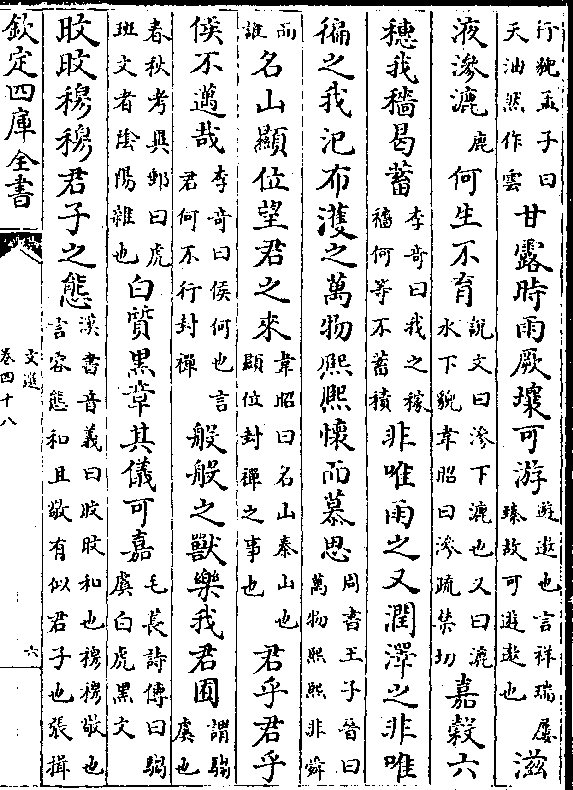 行貌孟子曰天油然作雲甘露時雨厥壤可游遊遨也言祥瑞屢臻故可遊遨也滋
液滲漉鹿何生不育説文曰滲下漉也又曰漉水下貌韋昭曰滲疏禁切嘉穀六
穗我穡曷蓄李竒曰我之稼穡何等不蓄積非唯雨之又潤澤之非唯
徧之我汜布濩之萬物熙熙懷而慕思周書王子晉曰萬物熙熙非舜
而誰名山顯位望君之來韋昭曰名山泰山也顯位封禪之事也君乎君乎
侯不邁哉李竒曰侯何也言君何不行封禪般般之獸樂我君囿謂騶虞也
春秋考異郵曰虎班文者陰陽雜也白質黒章其儀可嘉毛萇詩傳曰騶虞白虎黒文
旼旼穆穆君子之態漢書音義曰旼旼和也穆穆敬也言容態和且敬有似君子也張揖
欽定四庫全書
文選
卷四十八
六